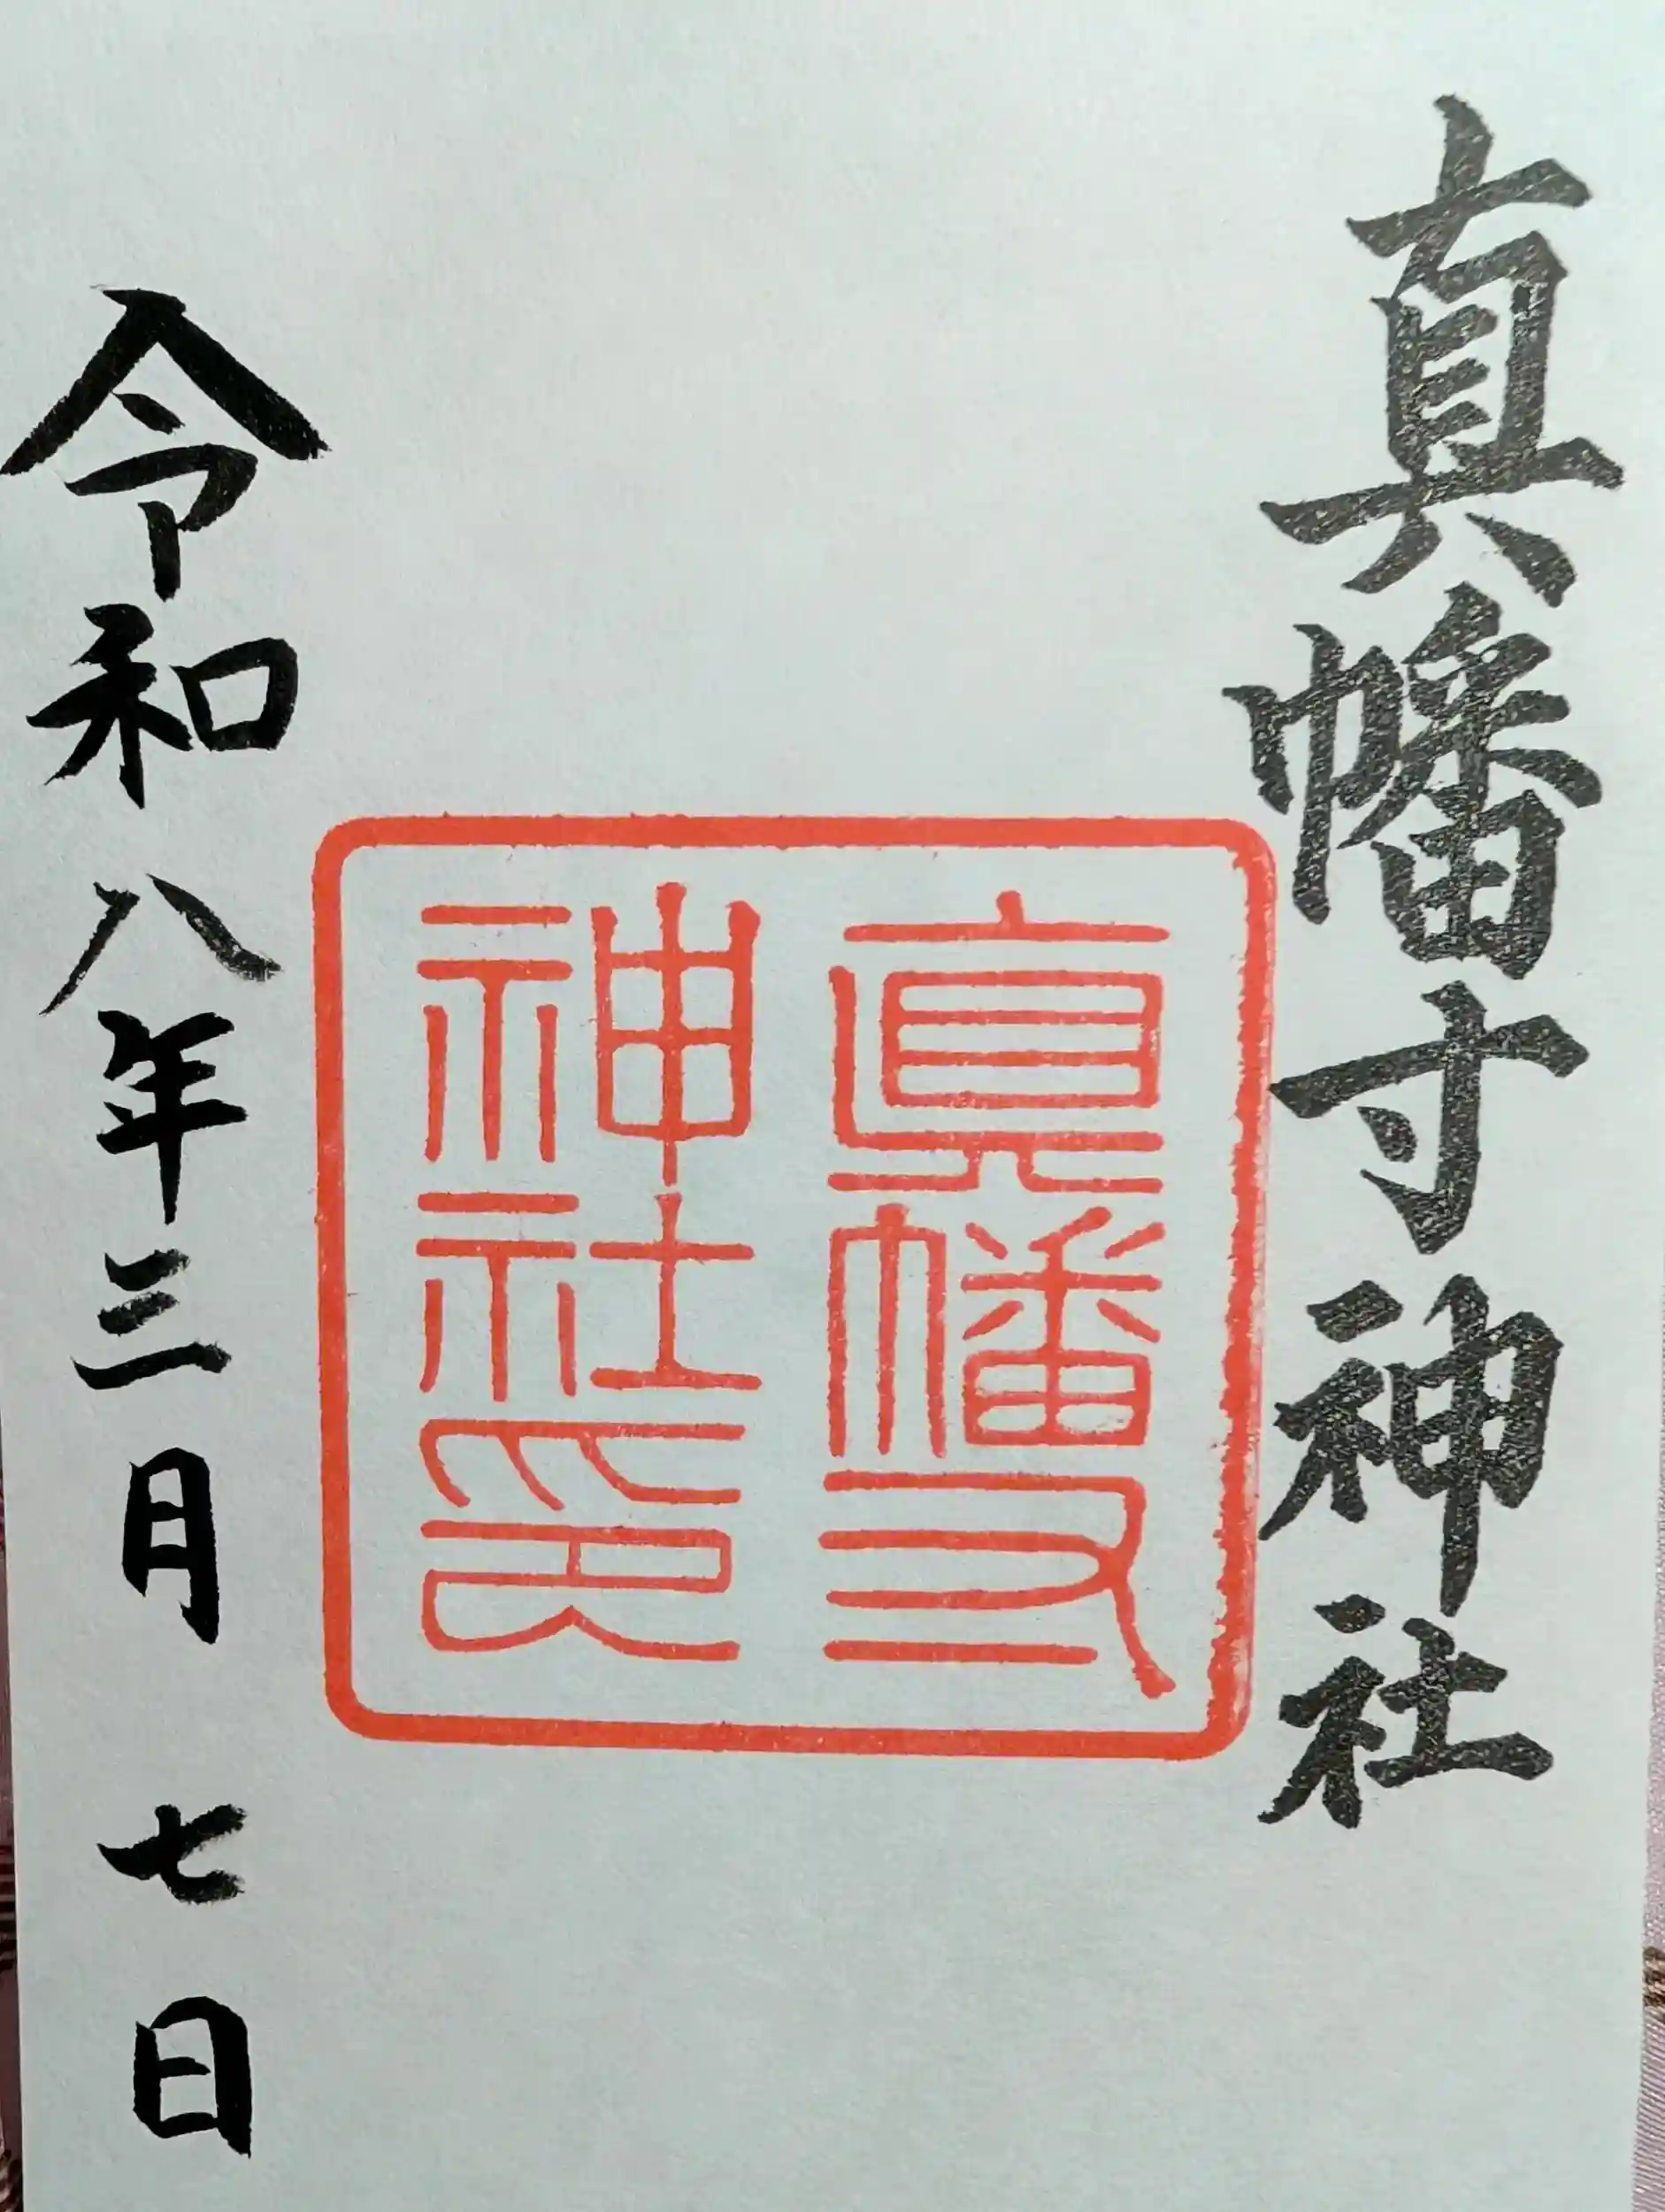 真幡寸神社
眞幡寸
神社印
令和八年三月七日